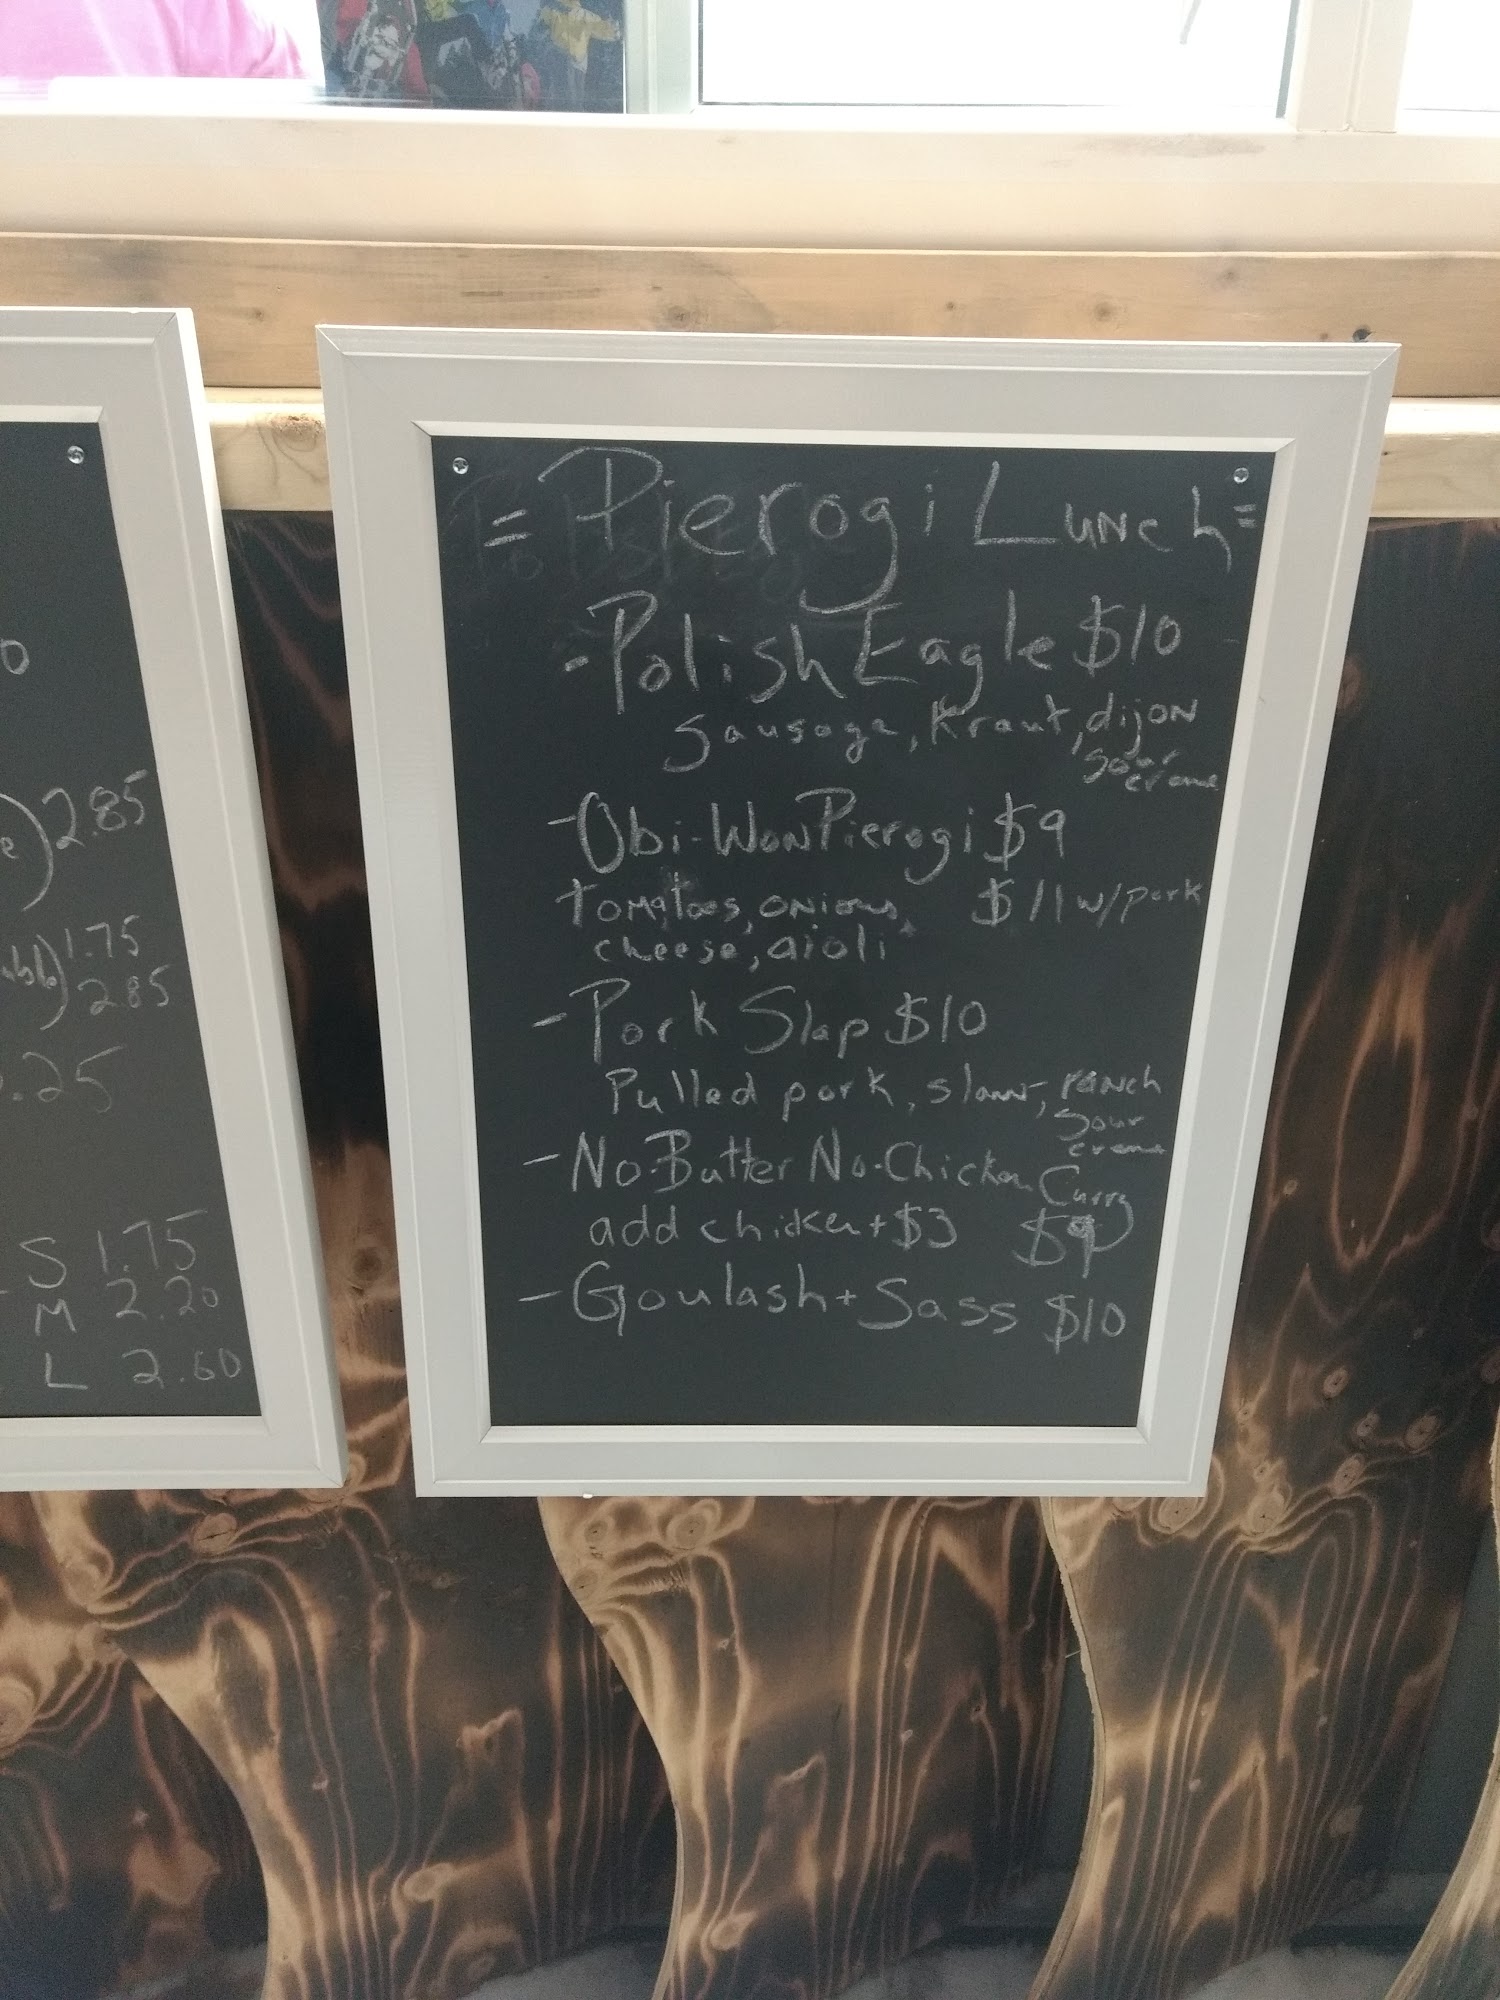 0
e) 2.85
1.75
2.85
.25
S 1.75
M 2.20
L 2.60
= Pierogi Lunch =
- Polish Eagle $10
Sausage, Kraut, dijon
Sour
creme
- Obi-Won Pierogi $9
tomatoes, onions, $11 w/pork
cheese, aioli
- Pork Slap $10
Pulled pork, slaw, ranch
Sour
creme
- No-Butter No-Chicken Curry
add chicken + $3 $9
- Goulash + Sass $10